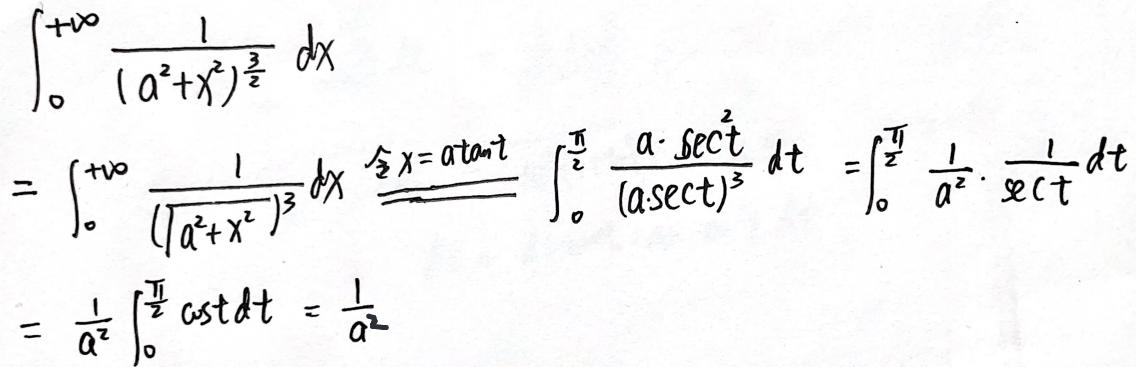 ∫₀^{+∞} 1/(a²+x²)^{3/2} dx
= ∫₀^{+∞} 1/(√(a²+x²))³ dx 令x=atant ∫₀^{π/2} a·sec²t/(a·sect)³ dt = ∫₀^{π/2} 1/a² · 1/sect dt
= 1/a² ∫₀^{π/2} cost dt = 1/a²